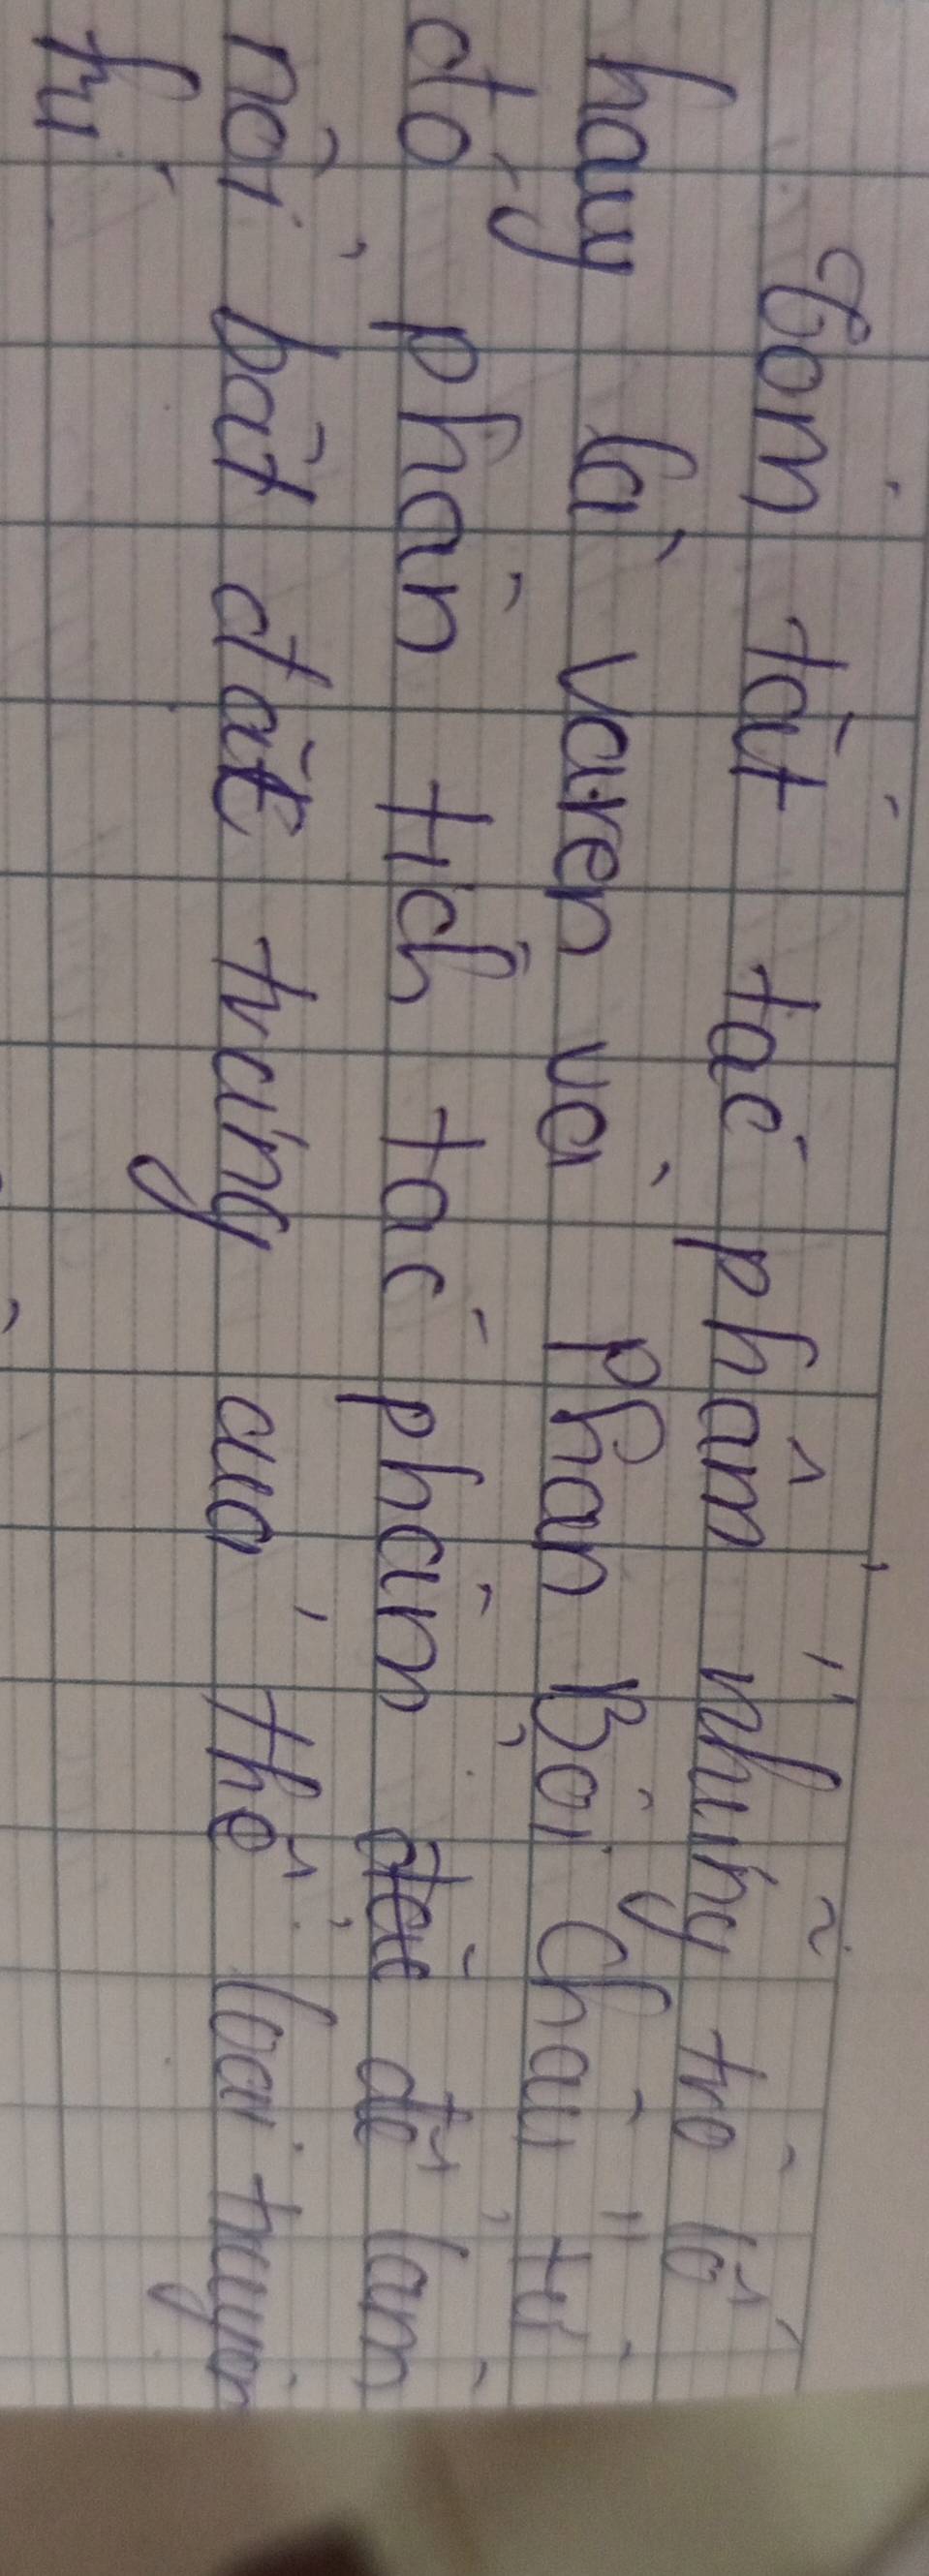 Tóm tắt tác phẩm "những trò lố
hay là varen và Phan Bội Châu" từ
đó phân tích tác phẩm để làm
nổi bật đặc trưng của thể loại truyện
kí